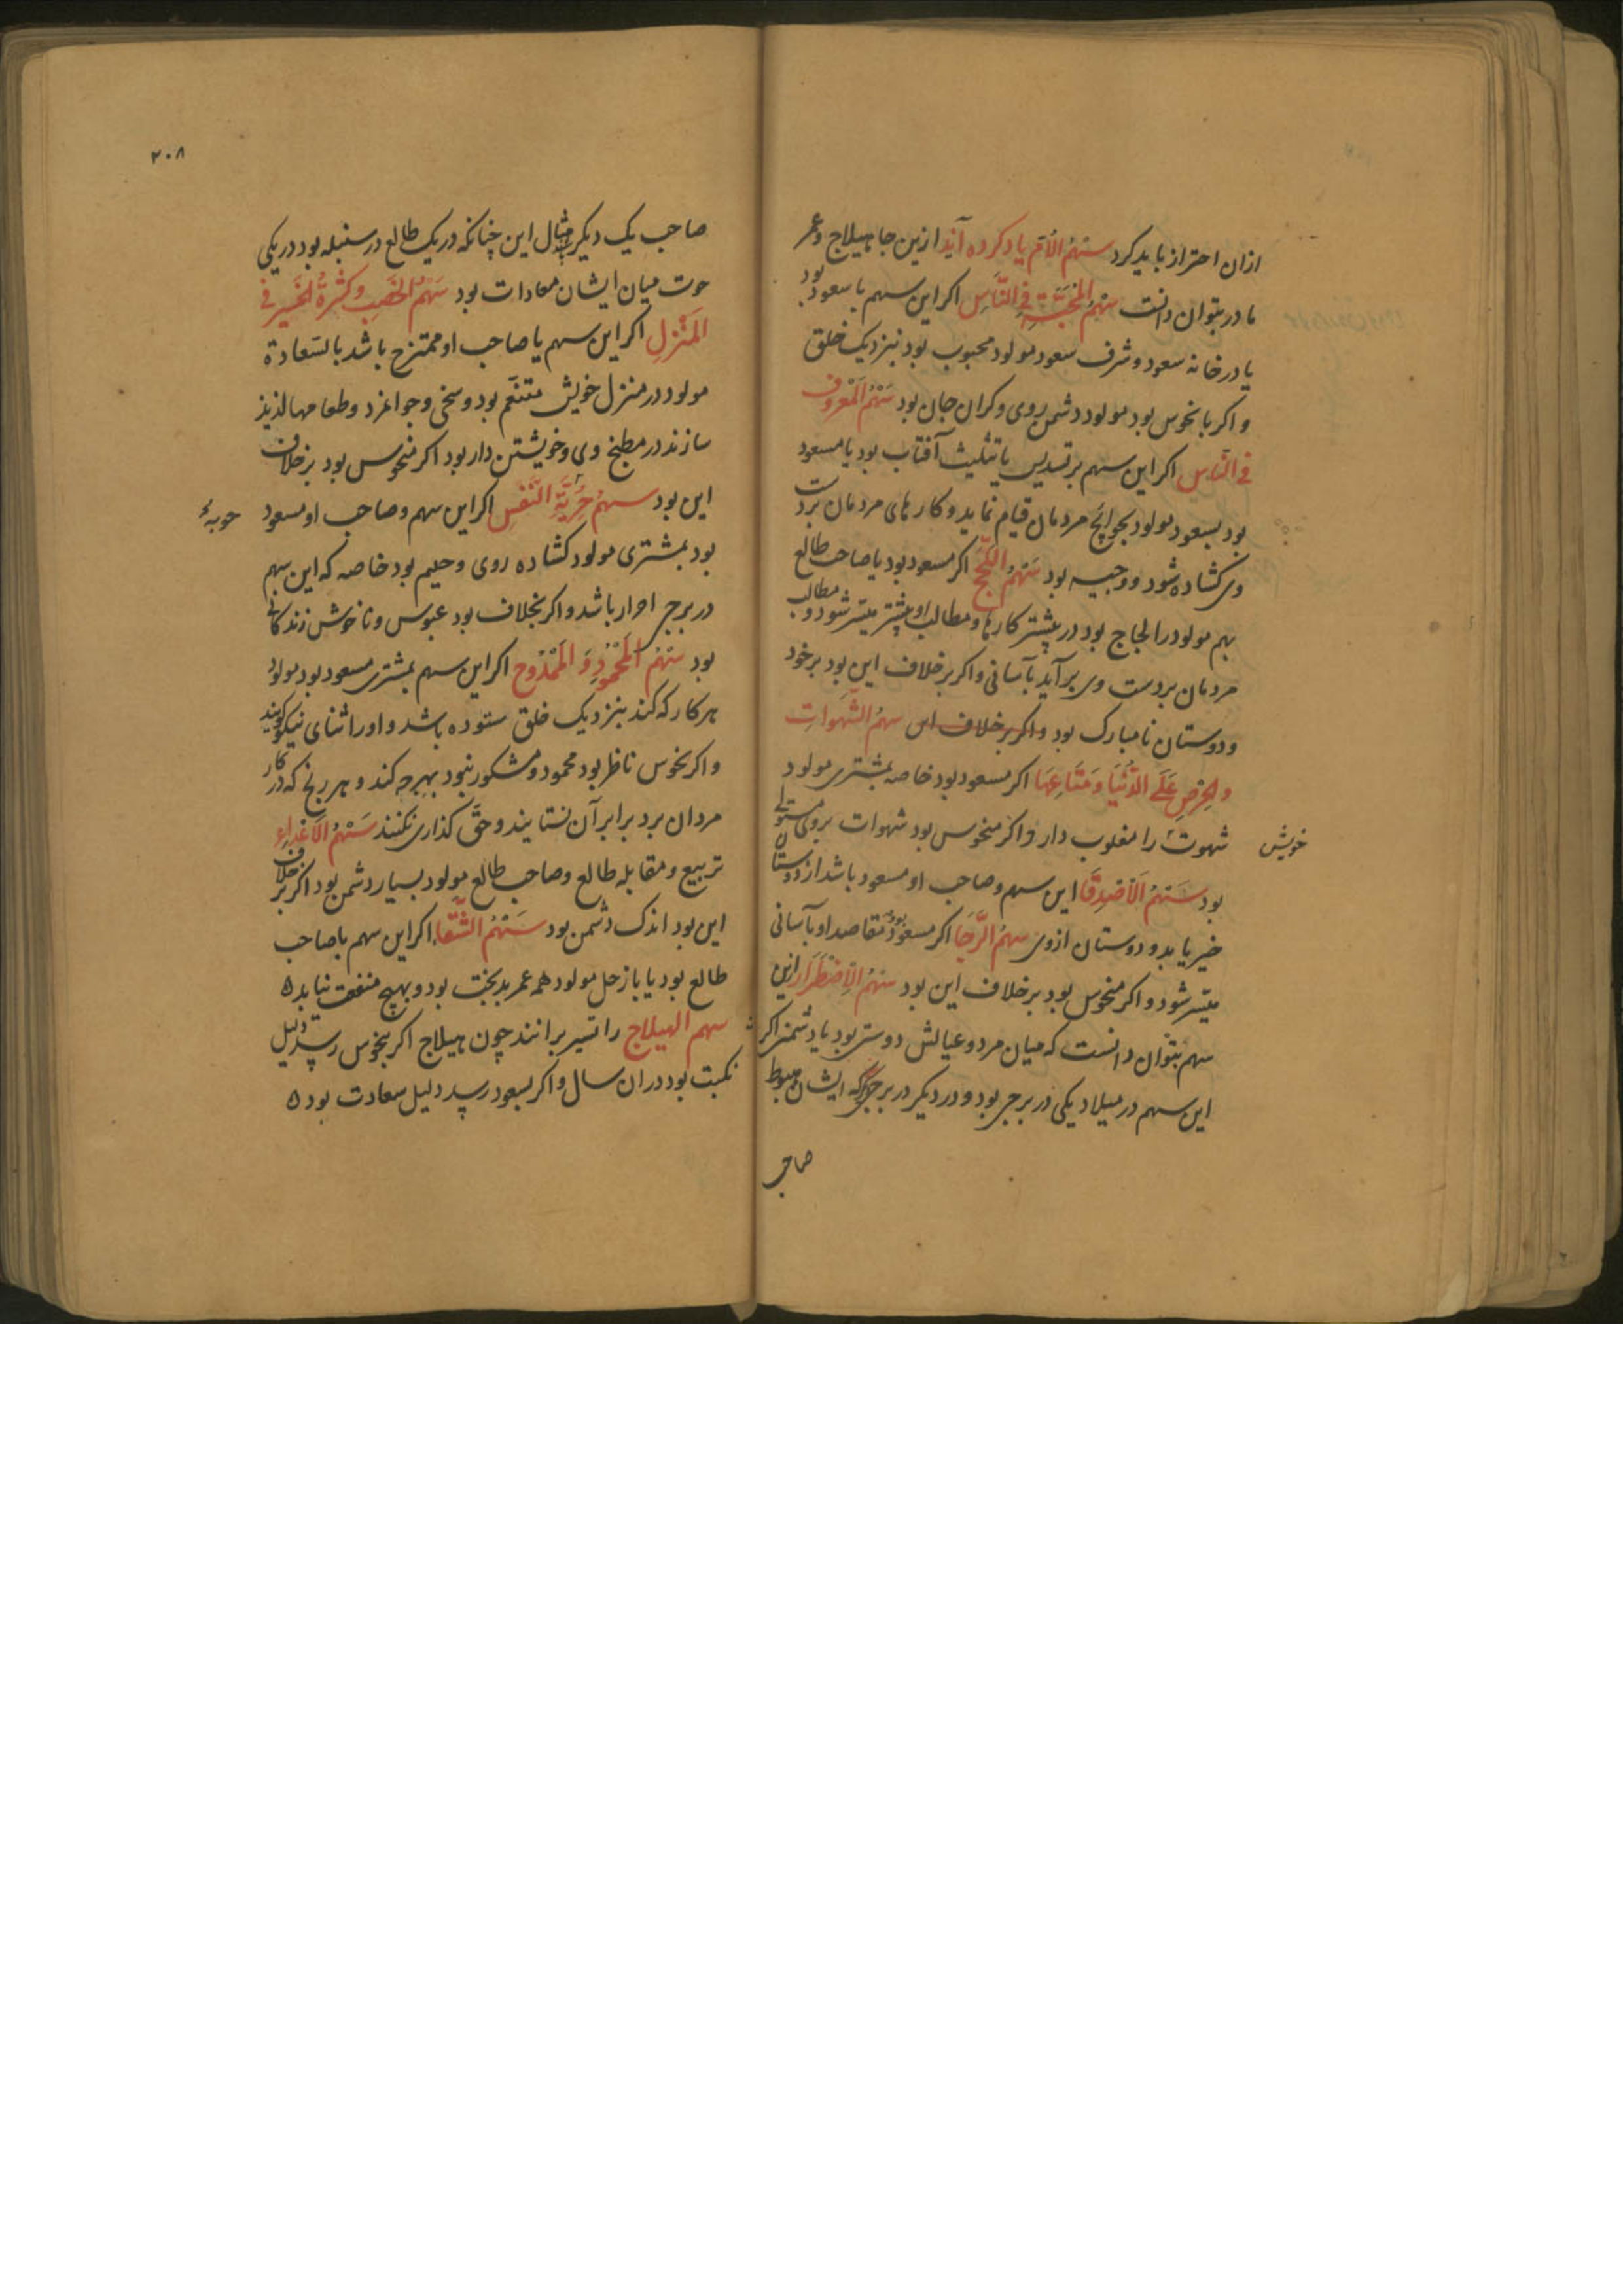 ازان احتراز باید کرد سَهْمُ الاُمّ یاد کرده آید ازین جا هیلاج و عمر
مادر بتوان دانست سَهْمُ المَحَبَّةِ فِی النَّاسِ اکر این سهم با سعود بود
یا در خانه سعود و شرف سعود مولود محبوب بود بنزدیک خلق
و اکر با نحوس بود مولود دشمن روی و کران جان بود سَهْمُ المَعْرُوفِ
فِی النَّاسِ اکر این سهم بر تسدیس یا تثلیث آفتاب بود یا مسعود
بود بسعود مولود بحوائج مردمان قیام نماید و کارهای مردمان بر دست
وی کشاده شود و وجیه بود سَهْمُ اکر مسعود بود یا صاحب طالع
بهم مولود را لجاج بود در بیشتر کارها و مطالب او بیشتر میسّر شود و مطالب
مردمان بر دست وی برآید بآسانی و اکر برخلاف این بود بر خود
و دوستان نامبارک بود و اکر برخلاف این سهمُ الشَّهَواتِ
والحِرْصِ عَلَی الدُّنْیَا وَمَتَاعِهَا اکر مسعود بود خاصه بمشتری مولود
شهوت را مغلوب دارد و اکر منحوس بود شهوات بر وی مستولی
خویش
بود سَهْمُ الاَصْدِقَا این سهم و صاحب او مسعود باشد از دوستان
خیر یابد و دوستان ازوی سهمُ الرَّجَا اکر مسعود بود مقاصد او بآسانی
میسّر شود و اکر منحوس بود برخلاف این بود سَهْمُ الاِضْطِرَار ازین
سهم بتوان دانست که میان مرد و عیالش دوستی بود یا دشمنی اکر
این سهم در میلاد یکی در برجی بود و در دیکر در برجی که ایشان هبوط
صاحب
٢٠٨
صاحب یک دیکر مثال این چنانکه در یک طالع در سنبله بود در یکی
حوت میان ایشان معادات بود سَهْمُ الخَصْبِ وکَثْرَةُ الخَیر فی
المَنْزِلِ اکر این سهم یا صاحب او ممتزج باشد با لسَعادة
مولود در منزل خویش متنعّم بود و سخی و جوانمرد و طعامها لذیذ
سازند در مطبخ وی و خویشتن دار بود اکر منحوس بود برخلاف
این بود سهمُ حُرِّیَّةِ النَّفْسِ اکر این سهم و صاحب او مسعود
بود بمشتری مولود کشاده روی و حلیم بود خاصه که این سهم
در برجی احرار باشد و اکر بخلاف بود عبوس و ناخوش زندکانی
بود سَهْمُ المَحْمُودِ وَ المَمْدُوح اکر این سهم بمشتری مسعود بود مولود
هر کار که کند بنزدیک خلق ستوده باشد و اورا ثنای نیکو کویند
و اکر نحوس ناظر بود محمود و مشکور نبود بهرچه کند و هر رنج که در کار
مردان برد برابر آن نستایند و حقّ کذاری نکنند سَهْمُ الاَعْداءِ
تربیع و مقابله طالع و صاحب طالع مولود بسیار دشمن بود اکر برخلاف
این بود اندک دشمن بود سَهْمُ الشّقَاء اکر این سهم با صاحب
طالع بود یا با زحل مولود همه عمر بدبخت بود و بهیچ منفعت نیابد ٥
سهم الهیلاج را تسیر برانند چون هیلاج اکر بنحوس رسد دلیل
نکبت بود دران سال و اکر بسعود رسد دلیل سعادت بود ٥